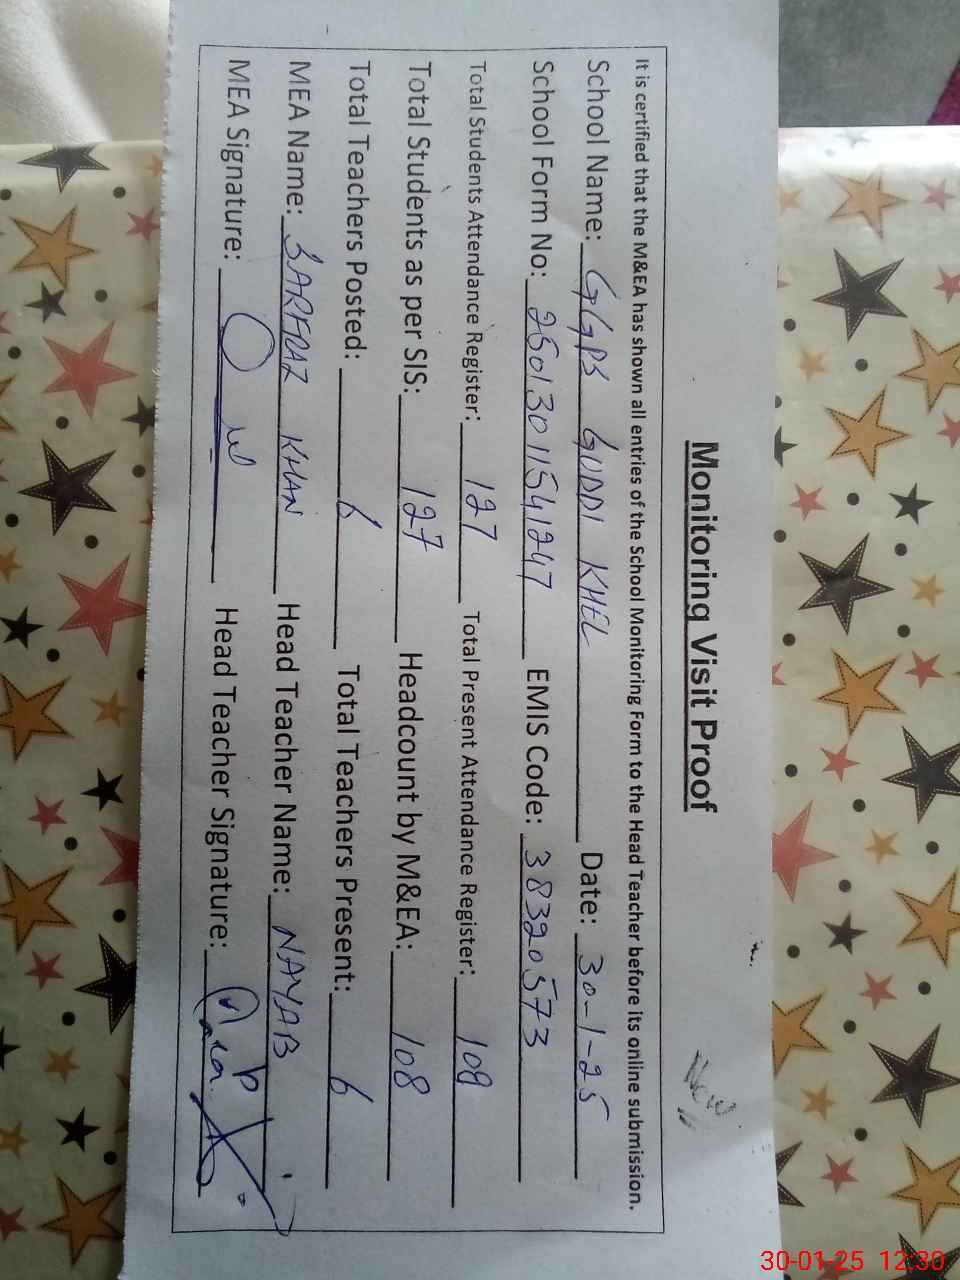 New
Monitoring Visit Proof
It is certified that the M&EA has shown all entries of the School Monitoring Form to the Head Teacher before its online submission.
School Name: GGPS GUDDI KHEL Date: 30-1-25
School Form No: 25013011541247 EMIS Code: 38320573
Total Students Attendance Register: 127 Total Present Attendance Register: 108
Total Students as per SIS: 127 Headcount by M&EA: 108
Total Teachers Posted: 6 Total Teachers Present: 6
MEA Name: SARFRAZ KHAN Head Teacher Name: NAYAB
MEA Signature: Head Teacher Signature:
30-01-25 12:30